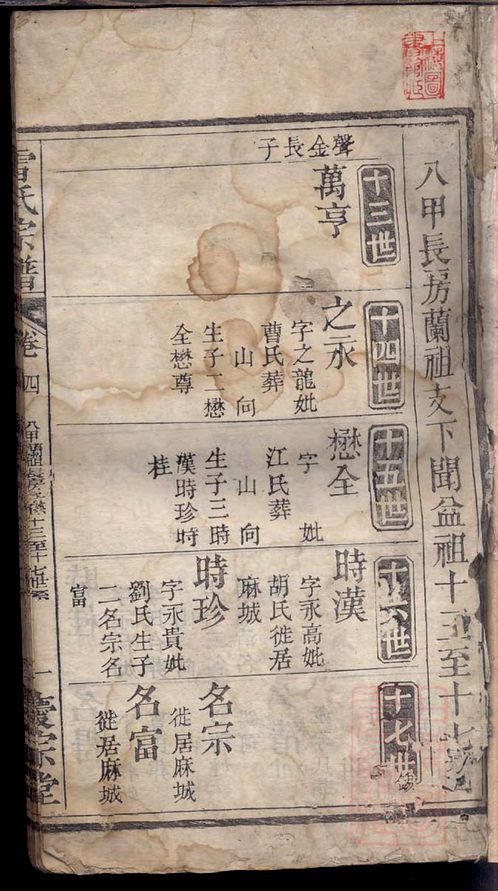 八甲長房蘭祖支下聞盆祖十三至十七世
十三世
聲金長子
萬亨
十四世
之永
字之龍妣
曹氏葬
山向
生子二懋
全懋尊
十五世
懋全
字 妣
江氏葬
山向
生子三時
漢時珍時
桂
十六世
時漢
字永高妣
胡氏徙居
麻城
時珍
字永貴妣
劉氏生子
二名宗名
富
十七世
名宗
徙居麻城
名富
徙居麻城
氏宗譜
卷四
一
宗堂